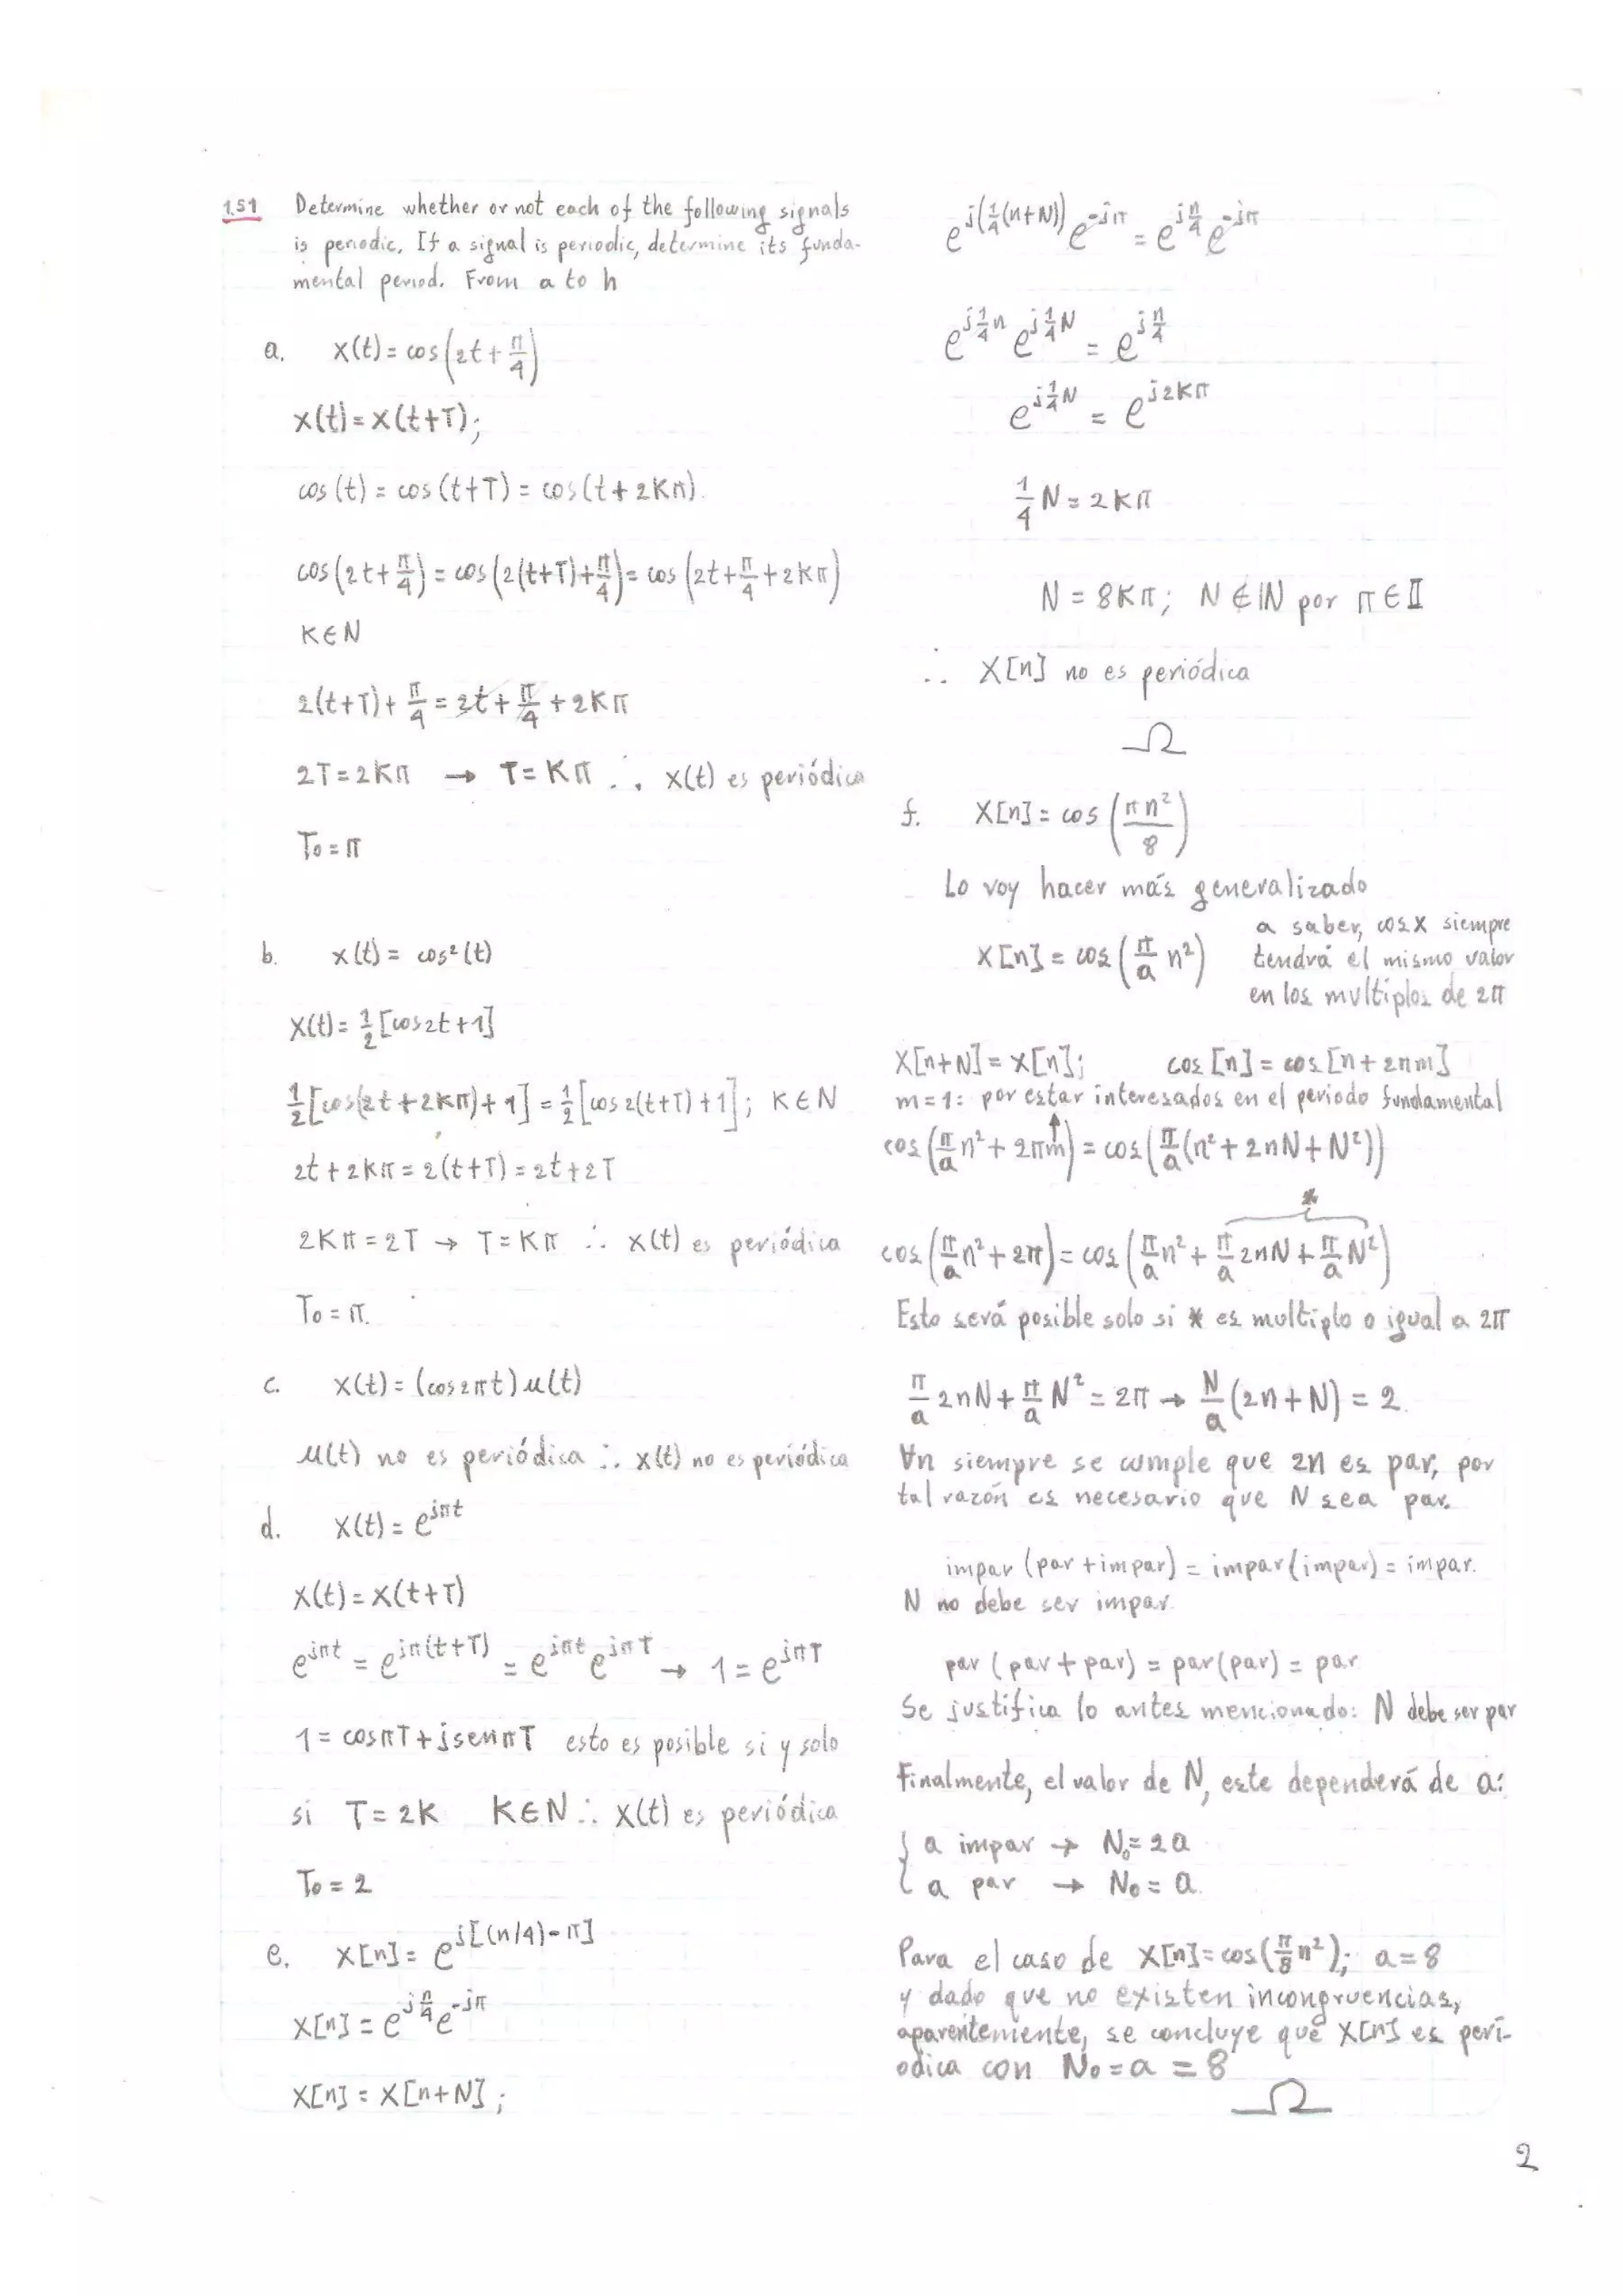 1.51 Determine whether or not each of the following signals
is periodic. If a signal is periodic, determine its funda-
mental period. From a to h
a. x(t) = cos(2t + π/4)
x(t) = x(t+T);
cos(t) = cos(t+T) = cos(t + 2Kπ).
cos(2t + π/4) = cos(2(t+T) + π/4) = cos(2t + π/4 + 2Kπ)
K∈N
2(t+T) + π/4 = 2t + π/4 + 2Kπ
2T = 2Kπ → T = Kπ ∴ x(t) es periódica
T₀ = π
b. x(t) = cos²(t)
x(t) = 1/2 [cos2t + 1]
1/2 [cos(2t + 2Kπ) + 1] = 1/2 [cos2(t+T) + 1]; K∈N
2t + 2Kπ = 2(t+T) = 2t + 2T
2Kπ = 2T → T = Kπ ∴ x(t) es periódica
T₀ = π.
c. x(t) = (cos2πt)u(t)
u(t) no es periódica ∴ x(t) no es periódica
d. x(t) = e^{jπt}
x(t) = x(t+T)
e^{jπt} = e^{jπ(t+T)} = e^{jπt} e^{jπT} → 1 = e^{jπT}
1 = cosπT + jsenπT esto es posible si y solo
si T = 2K K∈N ∴ x(t) es periódica
T₀ = 2
e. x[n] = e^{j[(n/4)-π]}
x[n] = e^{j n/4} e^{-jπ}
x[n] = x[n+N];
e^{j(1/4(n+N))} e^{-jπ} = e^{j n/4} e^{-jπ}
e^{j 1/4 n} e^{j 1/4 N} = e^{j n/4}
e^{j 1/4 N} = e^{j2Kπ}
1/4 N = 2Kπ
N = 8Kπ; N∉ℕ por π∈𝕀
∴ x[n] no es periódica
Ω
f. x[n] = cos(πn²/8)
Lo voy hacer más generalizado
a saber, cosx siempre
x[n] = cos(π/a n²) tendrá el mismo valor
en los multiplos de 2π
x[n+N] = x[n]; cos[n] = cos[n + 2πm]
m=1: por estar interesados en el periodo fundamental
cos(π/a n² + 2πm) = cos(π/a (n² + 2nN + N²))
*
cos(π/a n² + 2π) = cos(π/a n² + π/a 2nN + π/a N²)
Esto será posible solo si * es multiplo o igual a 2π
π/a 2nN + π/a N² = 2π → N/a (2n + N) = 2.
∀n siempre se cumple que 2n es par, por
tal razón es necesario que N sea par.
impar (par + impar) = impar(impar) = impar.
N no debe ser impar.
par (par + par) = par(par) = par
Se justifica lo antes mencionado: N debe ser par
Finalmente, el valor de N, este dependerá de a:
{ a impar → N₀ = 2a
a par → N₀ = a.
Para el caso de x[n] = cos(π/8 n²); a = 8
y dado que no existen incongruencias,
aparentemente, se concluye que x[n] es peri-
odica con N₀ = a = 8
Ω
2